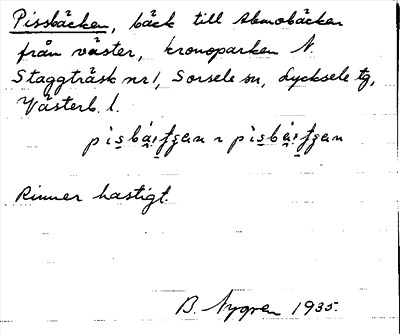 Pissbäcken, bäck till Abmobäcken
från väster, kronoparken N.
Staggträsk nr 1, Sorsele sn, Lycksele tg,
Västerb. l.
Rinner hastigt.
B. Nygren 1935.